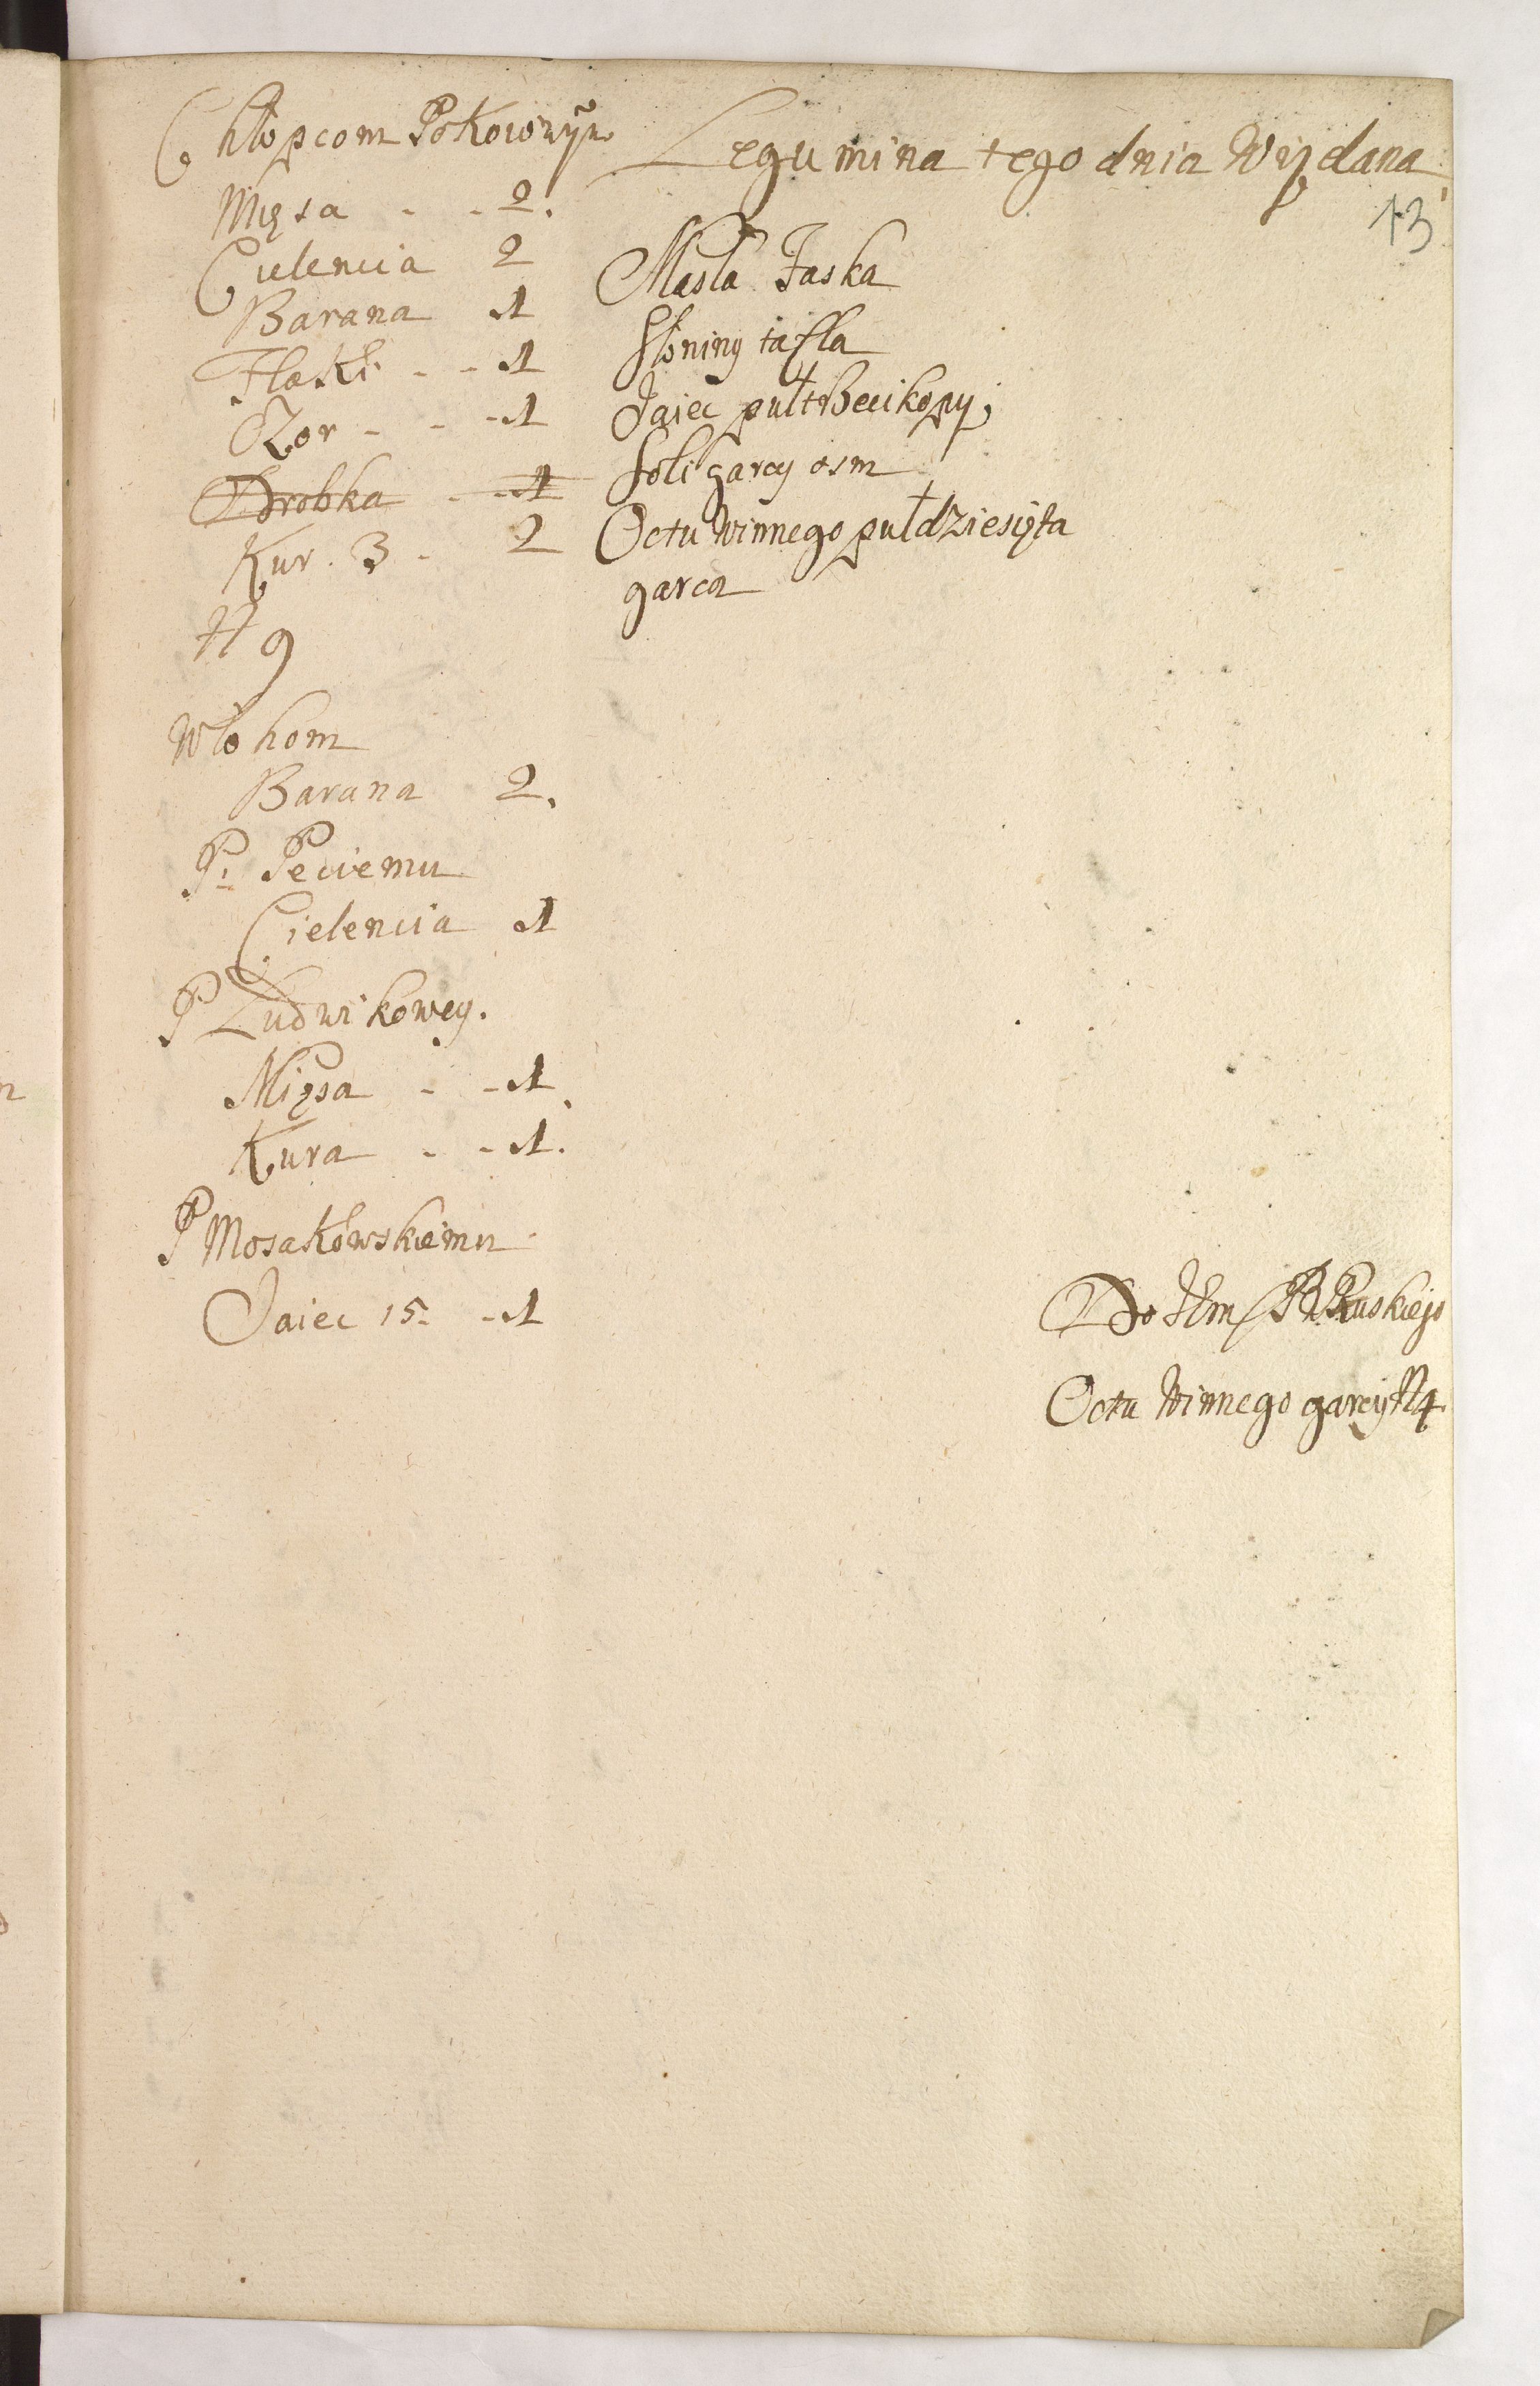 Chłopcom Pokoiowym
Mięsa - - 2.
Cielencia 2
Barana 1
Flaki - - 1
Ozor - - - 1
Drobka - - 1
Kur. 3 - 2
N 9
Włohom
Barana 2.
P. Peciemu
Cielencia 1
P Ludwikowey.
Mięsa - - 1
Kura - - 1.
P Mosakowskiemu
Jaiec 15. - 1
Legumina tego dnia Wydana
13
Masła Faska
Słoniny tafla
Jaiec pułtrzeci kopy
Soli garcy osm
Octu winnego pułdziesięta
garca
Do Jem Ruskiego
Octu Winnego garcy N 4